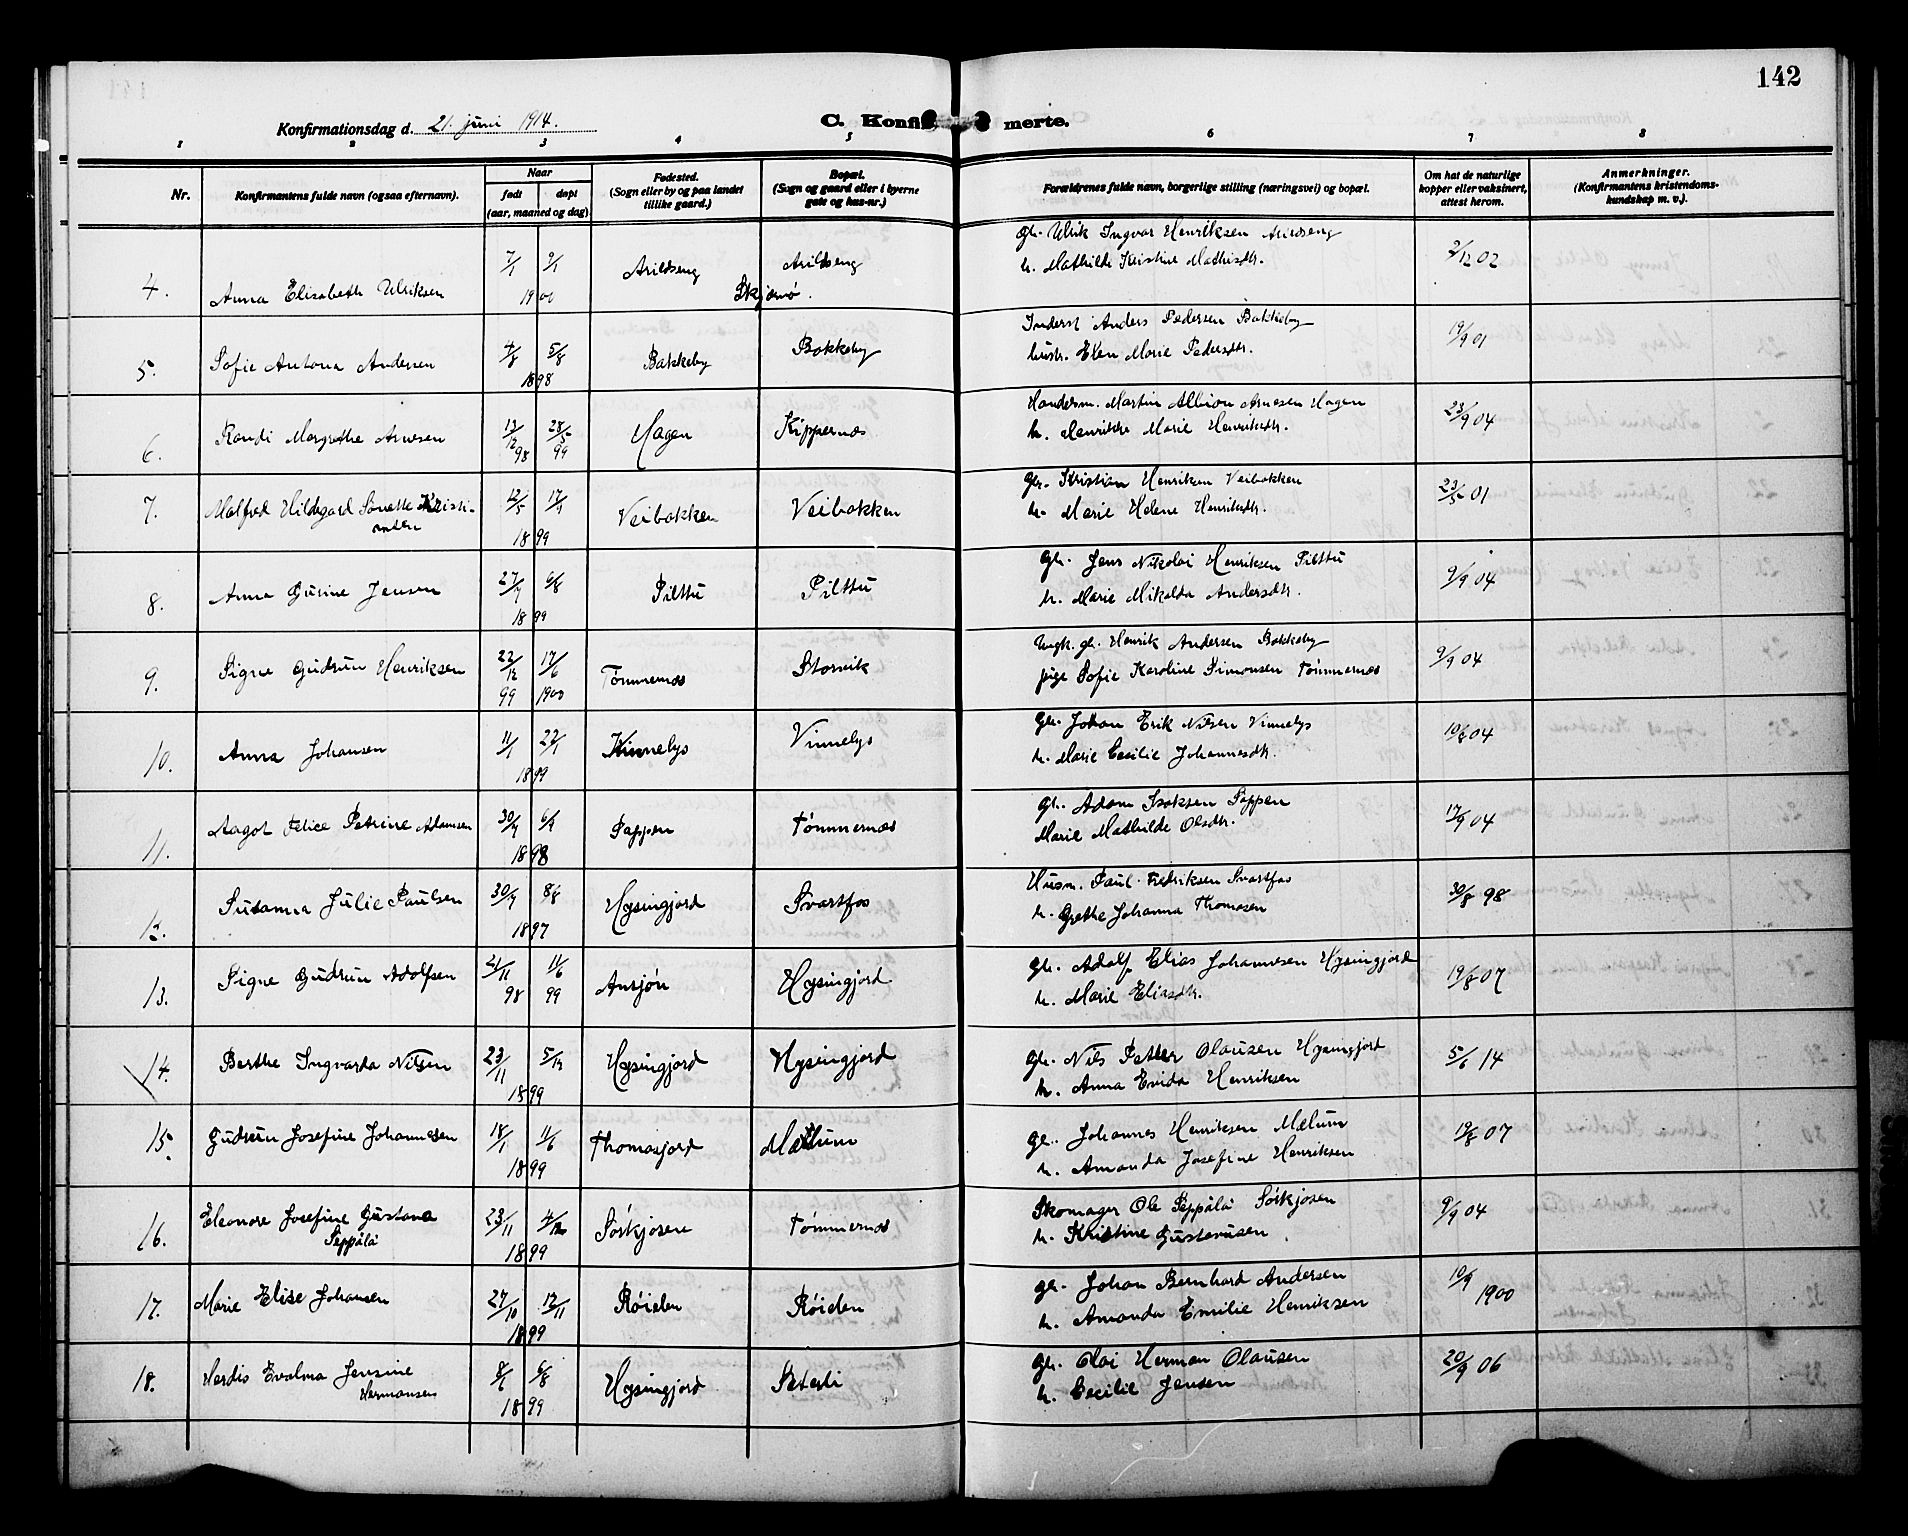 142
Konfirmationsdag d. 21. juni 1914.
C. Konfi merte.
1 2 3 4 5 6 7 8
Nr.
Konfirmantens fulde navn (ogsaa efternavn).
Naar
født døpt
(aar, maaned og dag)
Fødested.
(Sogn eller by og paa landet
tillike gaard.)
Bopæl.
(Sogn og gaard eller i byerne
gate og hus-nr.)
Forældrenes fulde navn, borgerlige stilling (næringsvei) og bopæl.
Om hat de naturlige
kopper eller vaksinert,
attest herom.
Anmerkninger.
(Konfirmantens kristendoms-
kundskap m. v.).
4. Anna Elisabeth Ulriksen 7/1 9/1 1900 Arildseng Arildseng Skjærvø.
Gbr. Ulrik Ingvar Henriksen Arildseng 2/12 02
h. Mathilde Kristine Mathisdtr.
5. Sofie Antona Andersen 4/8 5/8 1898 Bakkeby Bakkeby
Inderst Anders Pedersen Bakkeby 19/9 01
hustr. Elen Marie Pedersdtr.
6. Randi Margrethe Arnesen 13/12 98 28/5 99 Hagen Kippernæs
Handersm. Martin Albion Arnesen Hagen 23/9 04
h. Henrikke Marie Henriksdtr.
7. Malfred Hildegard Sanette Kristi-
ansen 12/5 17/9 1899 Veibakken Veibakken
Gbr. Kristian Henriksen Veibakken 23/5 01
h. Marie Helene Henriksdtr.
8. Anna Gurine Jensen 27/7 6/8 1899 Pilttu Pilttu
Gbr. Jens Nikolai Henriksen Pilttu 9/9 04
h. Marie Mikalda Andersdtr.
9. Signe Gudrun Henriksen 22/12 99 17/6 1900 Tömmernæs Storvik
Ungk. gbr. Henrik Andersen Bakkeby 9/9 04
pige Sofie Karoline Simonsen Tömmernæs
10. Anna Johansen 11/1 22/1 1899 Kinnelys Vinnelys
Gbr. Johan Erik Nilsen Vinnelys 10/6 04
h. Marie Cecilie Johannesdtr.
11. Aagot Felice Petrine Adamsen 30/7 6/9 1898 Sappen Tömmernæs
Gbr. Adam Isaksen Sappen 17/9 04
Marie Mathilde Olsdtr.
12. Susanna Julie Paulsen 30/7 8/8 1897 Hysingjord Svartfos
Husm. Paul Fredriksen Svartfos 30/8 98
h. Grethe Johanna Thomasen
13. Signe Gudrun Adolfsen 21/11 98 11/6 99 Ansjön Hysingjord
Gbr. Adolf Elias Johannesen Hysingjord 19/8 07
h. Marie Eliasdtr.
14. Berthe Ingvarda Nilsen 23/11 5/12 1899 Hysingjord Hysingjord
Gbr. Nils Petter Olausen Hysingjord 5/6 14
h. Anna Evida Henriksen
15. Gudrun Josefine Johannesen 18/1 11/6 1899 Thomasjord Mælum
Gbr. Johannes Henriksen Mælum 19/8 07
h. Amanda Josefine Henriksen
16. Eleonore Josefine Gustava
Seppälä 23/11 4/12 1899 Sörkjosen Tömmernæs
Skomager Ole Seppälä Sörkjosen 9/9 04
h. Kristine Gustavusen
17. Marie Elise Johansen 27/10 12/11 1899 Röielen Röielen
Gbr. Johan Bernhard Andersen 10/9 1900
h. Amanda Emilie Henriksen
18. Herdis Evalma Jensine
Hermansen 8/6 6/8 1899 Hysingjord Sæterli
Gbr. Olai Herman Olausen 20/9 06
h. Cecilie Jensen